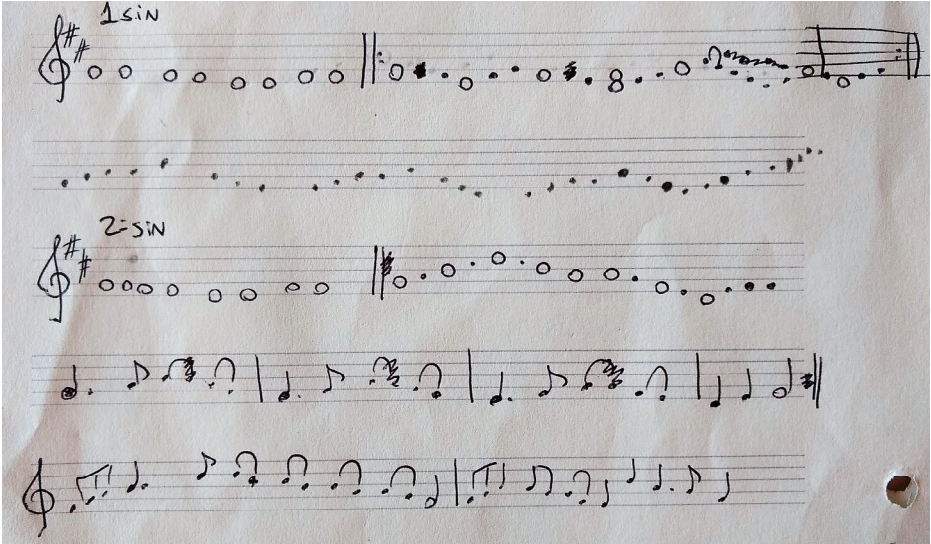 1 sin
2-sin